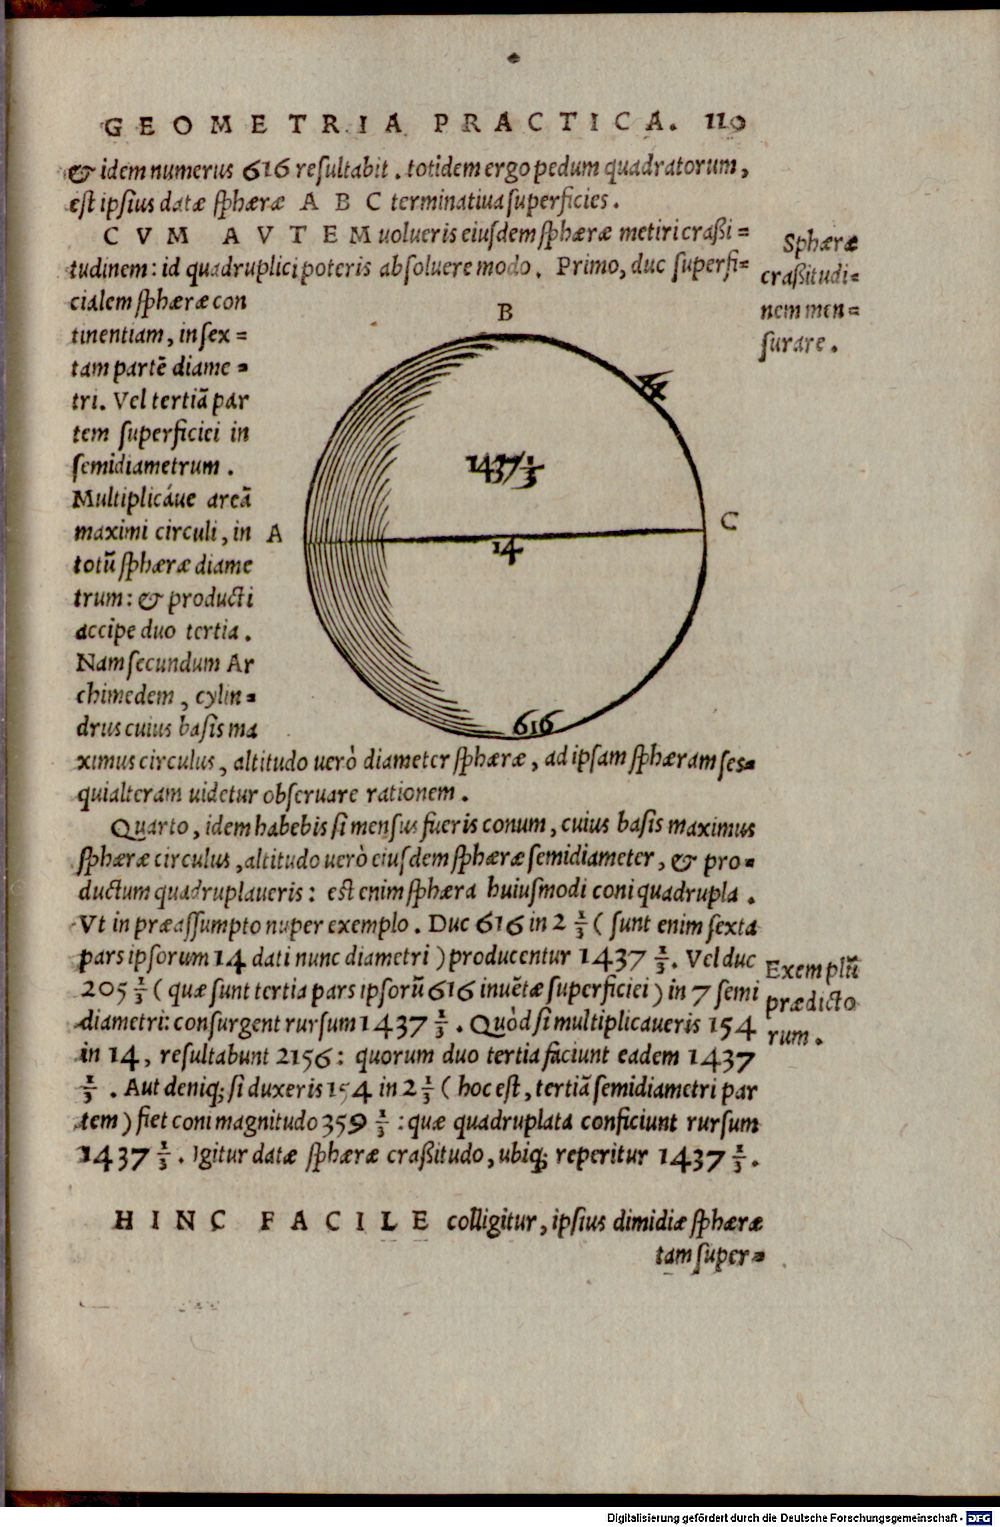 GEOMETRIA PRACTICA. 119
& idem numerus 616 resultabit. totidem ergo pedum quadratorum,
est ipsius datæ sphæræ A B C terminatiua superficies.
CVM AVTEM uolueris eiusdem sphæræ metiri craßi=
tudinem: id quadruplici poteris absoluere modo. Primo, duc superfi=
Sphæræ
craßitudi=
nem men=
surare.
cialem sphæræ con
tinentiam, in sex=
tam partẽ diame=
tri. Vel tertiã par
tem superficiei in
semidiametrum.
Multiplicáue areã
maximi circuli, in
totũ sphæræ diame
trum: & producti
accipe duo tertia.
Nam secundum Ar
chimedem, cylin=
drus cuius basis ma
B
44
1437 1/3
A
C
14
616
ximus circulus, altitudo uerò diameter sphæræ, ad ipsam sphæram ses=
quialteram uidetur obseruare rationem.
Quarto, idem habebis si mensus fueris conum, cuius basis maximus
sphæræ circulus, altitudo uerò eiusdem sphæræ semidiameter, & pro=
ductum quadruplaueris: est enim sphæra huiusmodi coni quadrupla.
Vt in præassumpto nuper exemplo. Duc 616 in 2 1/3 (sunt enim sexta
pars ipsorum 14 dati nunc diametri) producentur 1437 1/3. Vel duc
205 1/3 (quæ sunt tertia pars ipsorũ 616 inuẽtæ superficiei) in 7 semi
diametri: consurgent rursum 1437 1/3. Quòd si multiplicaueris 154
in 14, resultabunt 2156: quorum duo tertia faciunt eadem 1437
1/3. Aut deniq; si duxeris 154 in 2 1/3 (hoc est, tertiã semidiametri par
tem) fiet coni magnitudo 359 1/3: quæ quadruplata conficiunt rursum
1437 1/3. Igitur datæ sphæræ craßitudo, ubiq; reperitur 1437 1/3.
Exemplũ
prædicto
rum.
HINC FACILE colligitur, ipsius dimidiæ sphæræ
tam super=
Digitalisierung gefördert durch die Deutsche Forschungsgemeinschaft - DFG